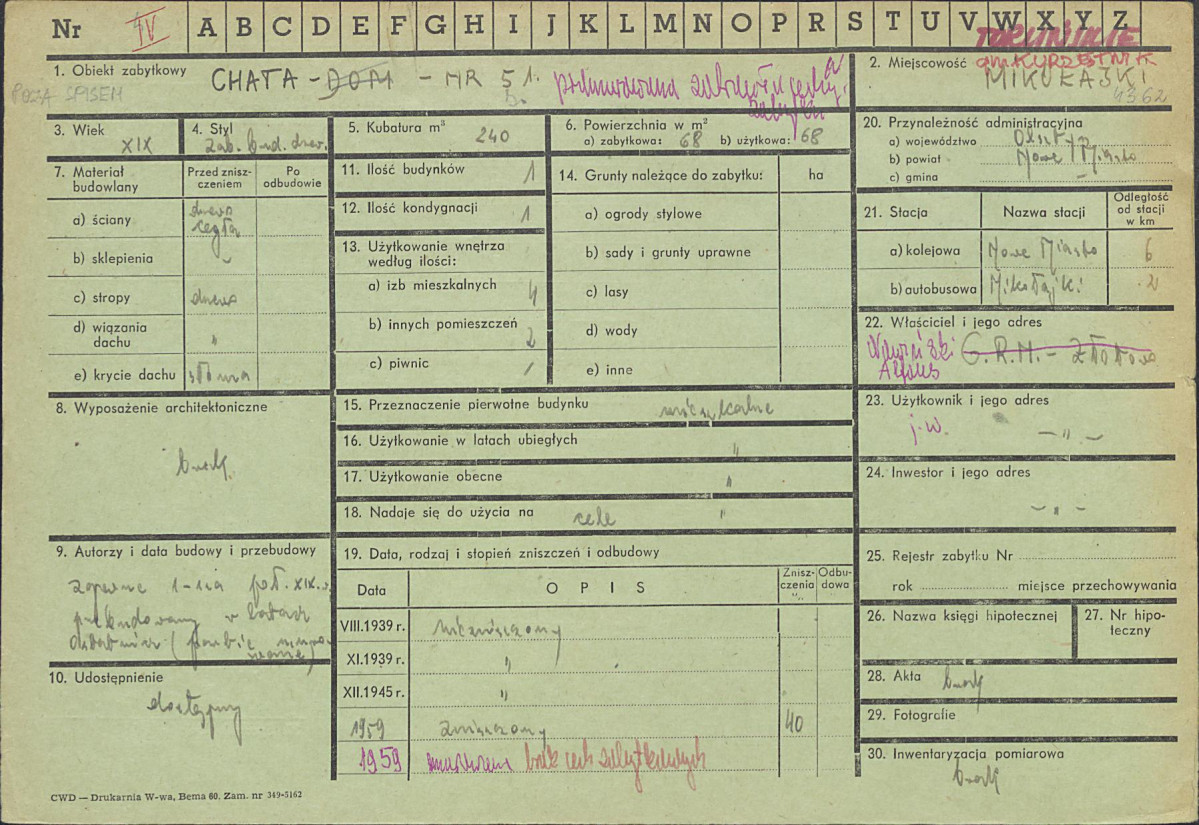 Nr IV A B C D E F G H I J K L M N O P R S T U V W X Y Z
1. Obiekt zabytkowy CHATA - DOM - NR 51.
POZA SPISEM
2. Miejscowość
MIKOŁAJKI
4362
3. Wiek XIX
4. Styl
5. Kubatura m³ 240
6. Powierzchnia w m²
a) zabytkowa: 68 b) użytkowa: 68
20. Przynależność administracyjna
a) województwo Olsztyn
b) powiat Nowe Miasto
c) gmina –
7. Materiał budowlany
Przed zniszczeniem
Po odbudowie
a) ściany drewno cegła
b) sklepienia -
c) stropy drewno
d) wiązania dachu "
e) krycie dachu słoma
11. Ilość budynków 1
12. Ilość kondygnacji 1
13. Użytkowanie wnętrza według ilości:
a) izb mieszkalnych 4
b) innych pomieszczeń 2
c) piwnic 1
14. Grunty należące do zabytku: ha
a) ogrody stylowe
b) sady i grunty uprawne
c) lasy
d) wody
e) inne
21. Stacja Nazwa stacji Odległość od stacji w km
a) kolejowa Nowe Miasto 6
b) autobusowa Mikołajki 2
22. Właściciel i jego adres
G.R.N. - Złotowo
Alfons
23. Użytkownik i jego adres
j.w. — " —
24. Inwestor i jego adres
— " —
8. Wyposażenie architektoniczne
brak
15. Przeznaczenie pierwotne budynku mieszkalne
16. Użytkowanie w latach ubiegłych "
17. Użytkowanie obecne "
18. Nadaje się do użycia na cele "
9. Autorzy i data budowy i przebudowy
zapewne 1-sza poł. XIX w.
przebudowany w latach
19. Data, rodzaj i stopień zniszczeń i odbudowy
Data OPIS Zniszczenia "/o Odbudowa
VIII.1939 r. niezniszczony
XI.1939 r. "
XII.1945 r. "
1959 zniszczony 40
1959 brak cech zabytkowych
10. Udostępnienie
dostępny
25. Rejestr zabytku Nr
rok miejsce przechowywania
26. Nazwa księgi hipotecznej
27. Nr hipoteczny
28. Akta brak
29. Fotografie
30. Inwentaryzacja pomiarowa
brak
CWD — Drukarnia W-wa, Bema 60. Zam. nr 349-5162